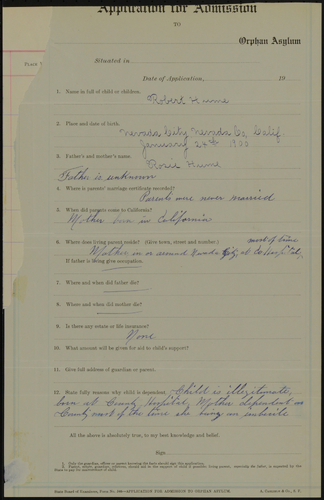 Application for Admission
TO
Orphan Asylum
PLACE
Situated in
Date of Application, 19
1. Name in full of child or children.
Robert Hume
2. Place and date of birth.
Nevada City Nevada Co. Calif.
January 24th 1900
3. Father's and mother's name.
Rosie Hume
Father is unknown
4. Where is parents' marriage certificate recorded?
Parents were never married
5. When did parents come to California?
Mother born in California
6. Where does living parent reside? (Give town, street and number)
most of time
Mother in or around Nevada City, at Co Hospital,
If father is living give occupation.
7. Where and when did father die?
8. Where and when did mother die?
9. Is there any estate or life insurance?
None
10. What amount will be given for aid to child's support?
11. Give full address of guardian or parent.
12. State fully reasons why child is dependent.
Child is illegitimate,
born at County Hospital, Mother dependent on
County most of the time she being an imbecile
All the above is absolutely true, to my best knowledge and belief.
Sign